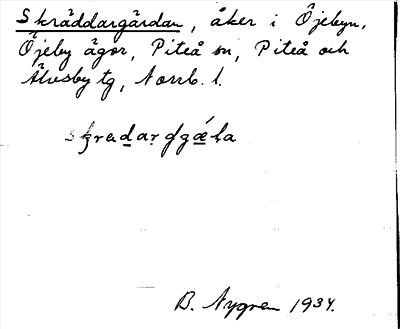 Skräddargärdan, åker i Öjebyn,
Öjeby ägor, Piteå sn, Piteå och
Älvsby tg, Norrb. l.
B. Nygren 1934.